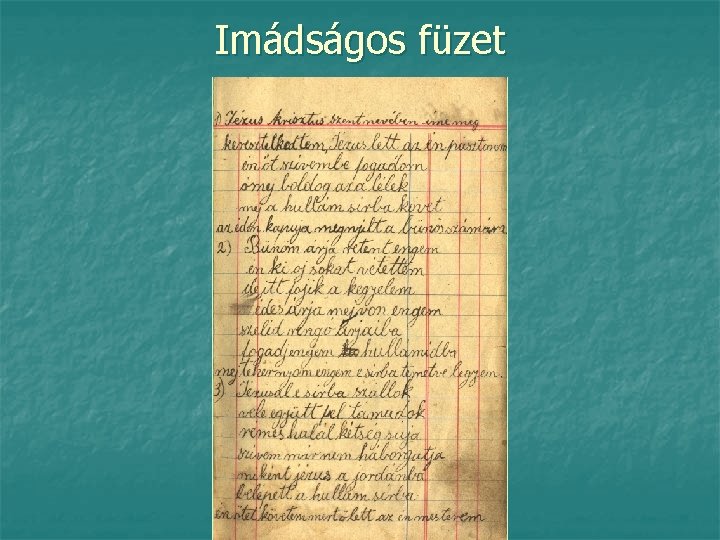 Imádságos füzet
1) Jézus Krisztus szent nevében íme meg
keresztelkedtem, Jézus lett az én pásztorom
én őt szívembe fogadom
ó mej boldog az a lélek
mej a hullám sirba követ
az édon kapuja megnyilt a bűnös számára
2) Bűnöm árja retent engem
én ki oj sokat vétettem
de itt fojik a kegyelem
édes árja mejvon engem
szelid rengő árjaiba
fogadj engem hullámidba
mej temérnyom engem e sirba temetve legyen.
3) Jézusal e sirba szállok
vele együtt fel támadok
remes halál kétség suja
szivem már nem háborgatja
miként jézus a jordánba
bélépett a hullám sirba
én őtet követem mert ő lett az én mesterem